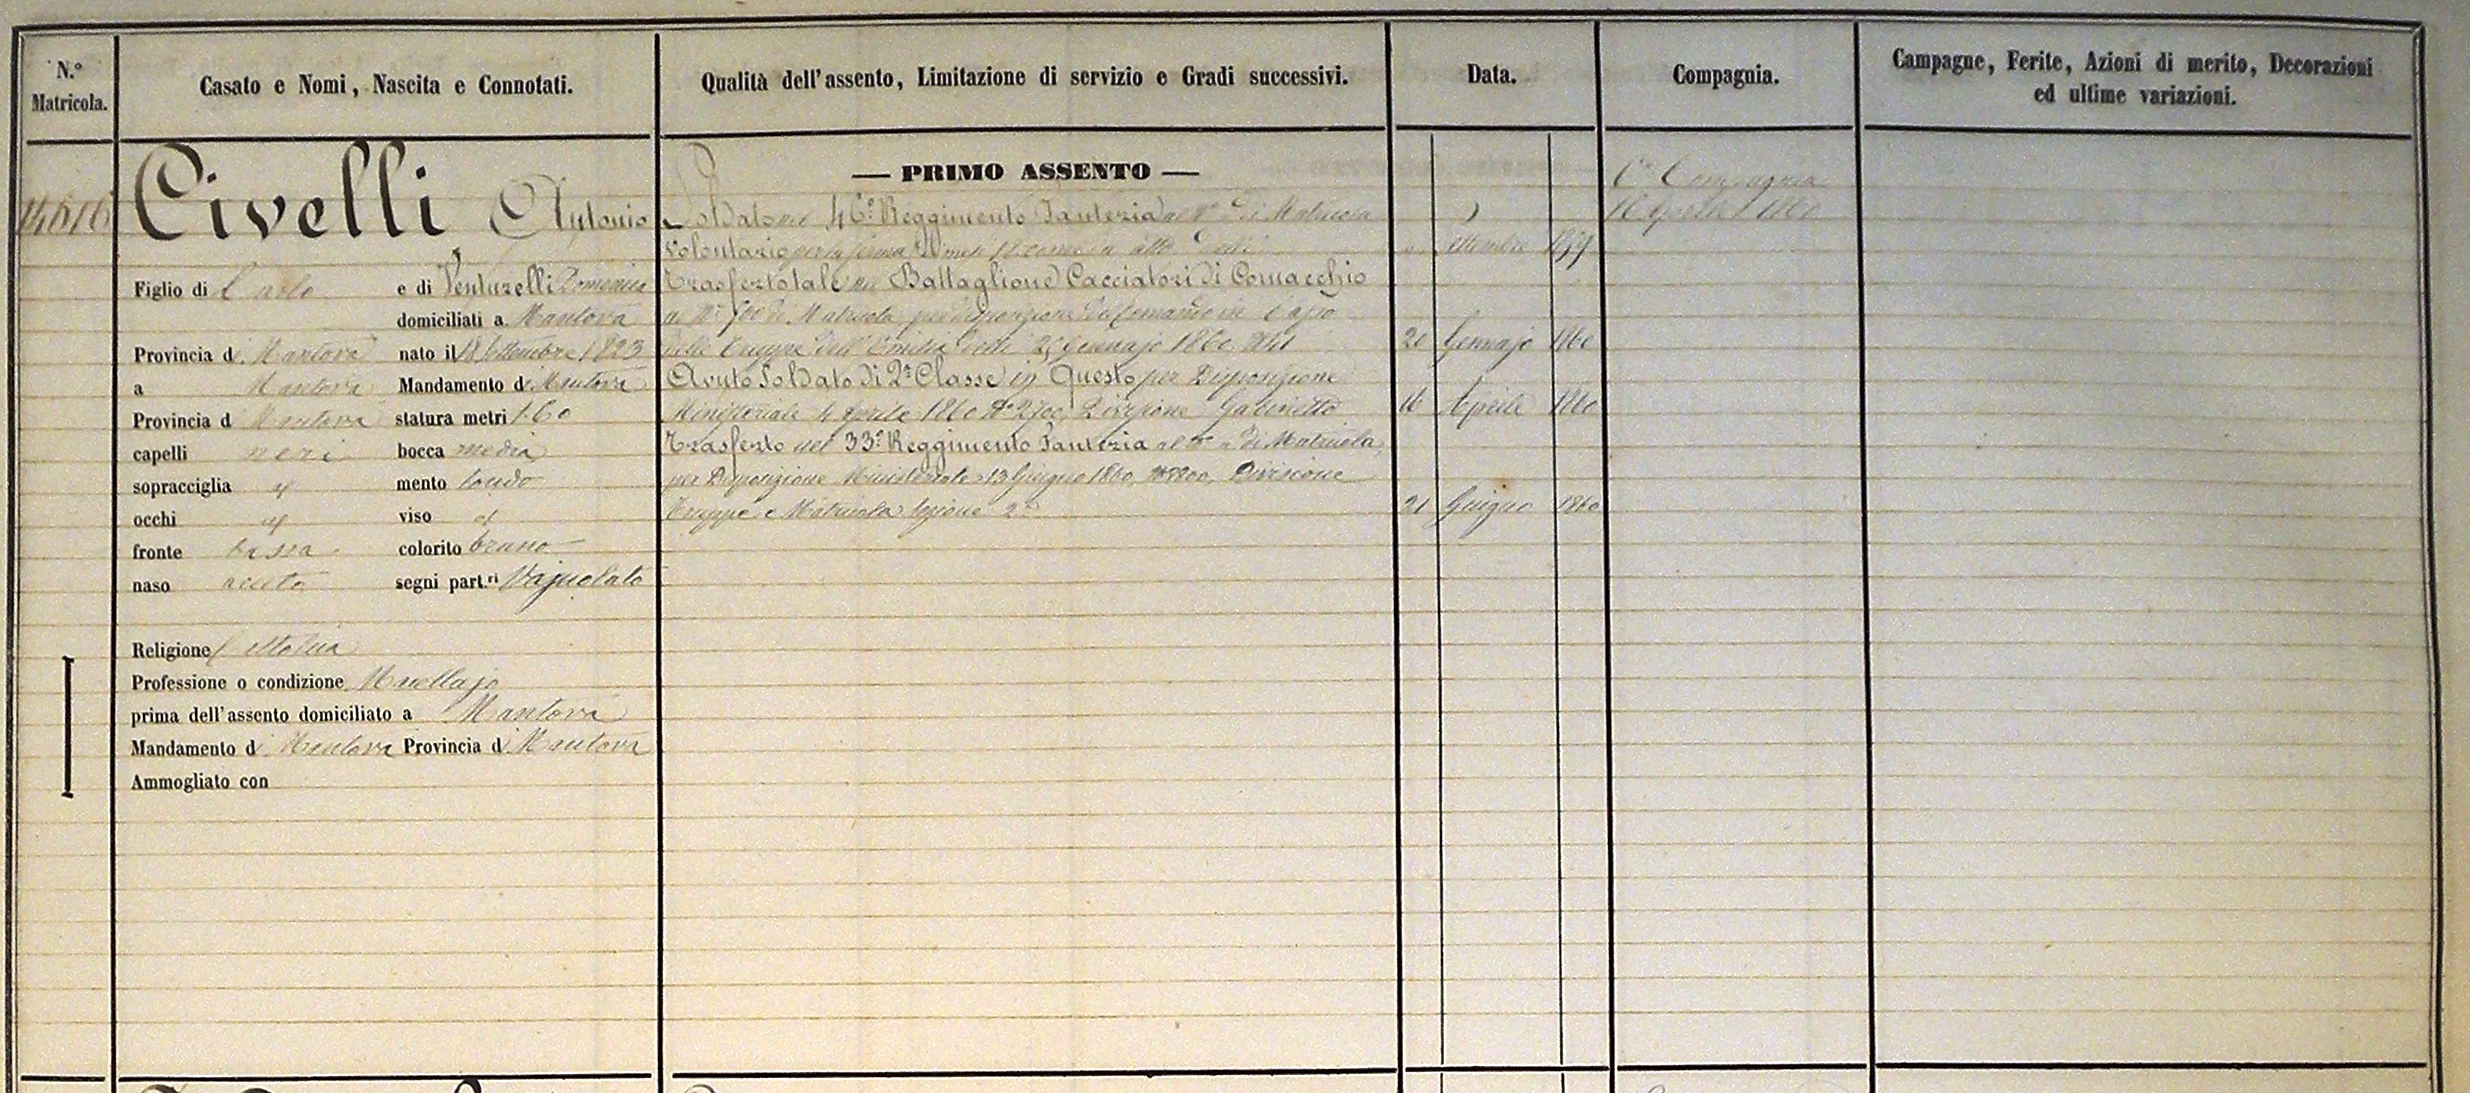 N.° Matricola.
Casato e Nomi, Nascita e Connotati.
Qualità dell'assento, Limitazione di servizio e Gradi successivi.
Data.
Compagnia.
Campagne, Ferite, Azioni di merito, Decorazioni
ed ultime variazioni.
Civelli Antonio
Figlio di Carlo e di Venturelli Domenica
domiciliati a Mantova
Provincia di Mantova nato il 18 Settembre 1823
a Mantova Mandamento di Mantova
Provincia d Mantova statura metri 1.60
capelli neri bocca media
sopracciglia mento tondo
occhi viso
fronte bassa colorito bruno
naso acuto segni part.ri Vajuolato
Religione Cattolica
Professione o condizione
prima dell'assento domiciliato a Mantova
Mandamento di Mantova Provincia di Mantova
Ammogliato con
— PRIMO ASSENTO —
Soldato nel 46° Reggimento Fanteria al N° di Matricola
Volontario per la ferma di mesi 18 come da atto delli Settembre 1859
Trasferto tale nel Battaglione Cacciatori di Comacchio
al N° di Matricola per disposizione del Comando in Capo
delle Truppe dell'Emilia delli 25 Gennajo 1860 20 Gennajo 1860
Avuto Soldato di 2a Classe in Questo per Disposizione
Ministeriale 4 Aprile 1860 N° 2700, Divisione Gabinetto 16 Aprile 1860
Trasferto nel 33° Reggimento Fanteria al N° di Matricola,
per Disposizione Ministeriale 13 Giugno 1860, Divisione
Truppe e Matricola Sezione 2a 21 Giugno 1860
Compagnia
16 Aprile 1860